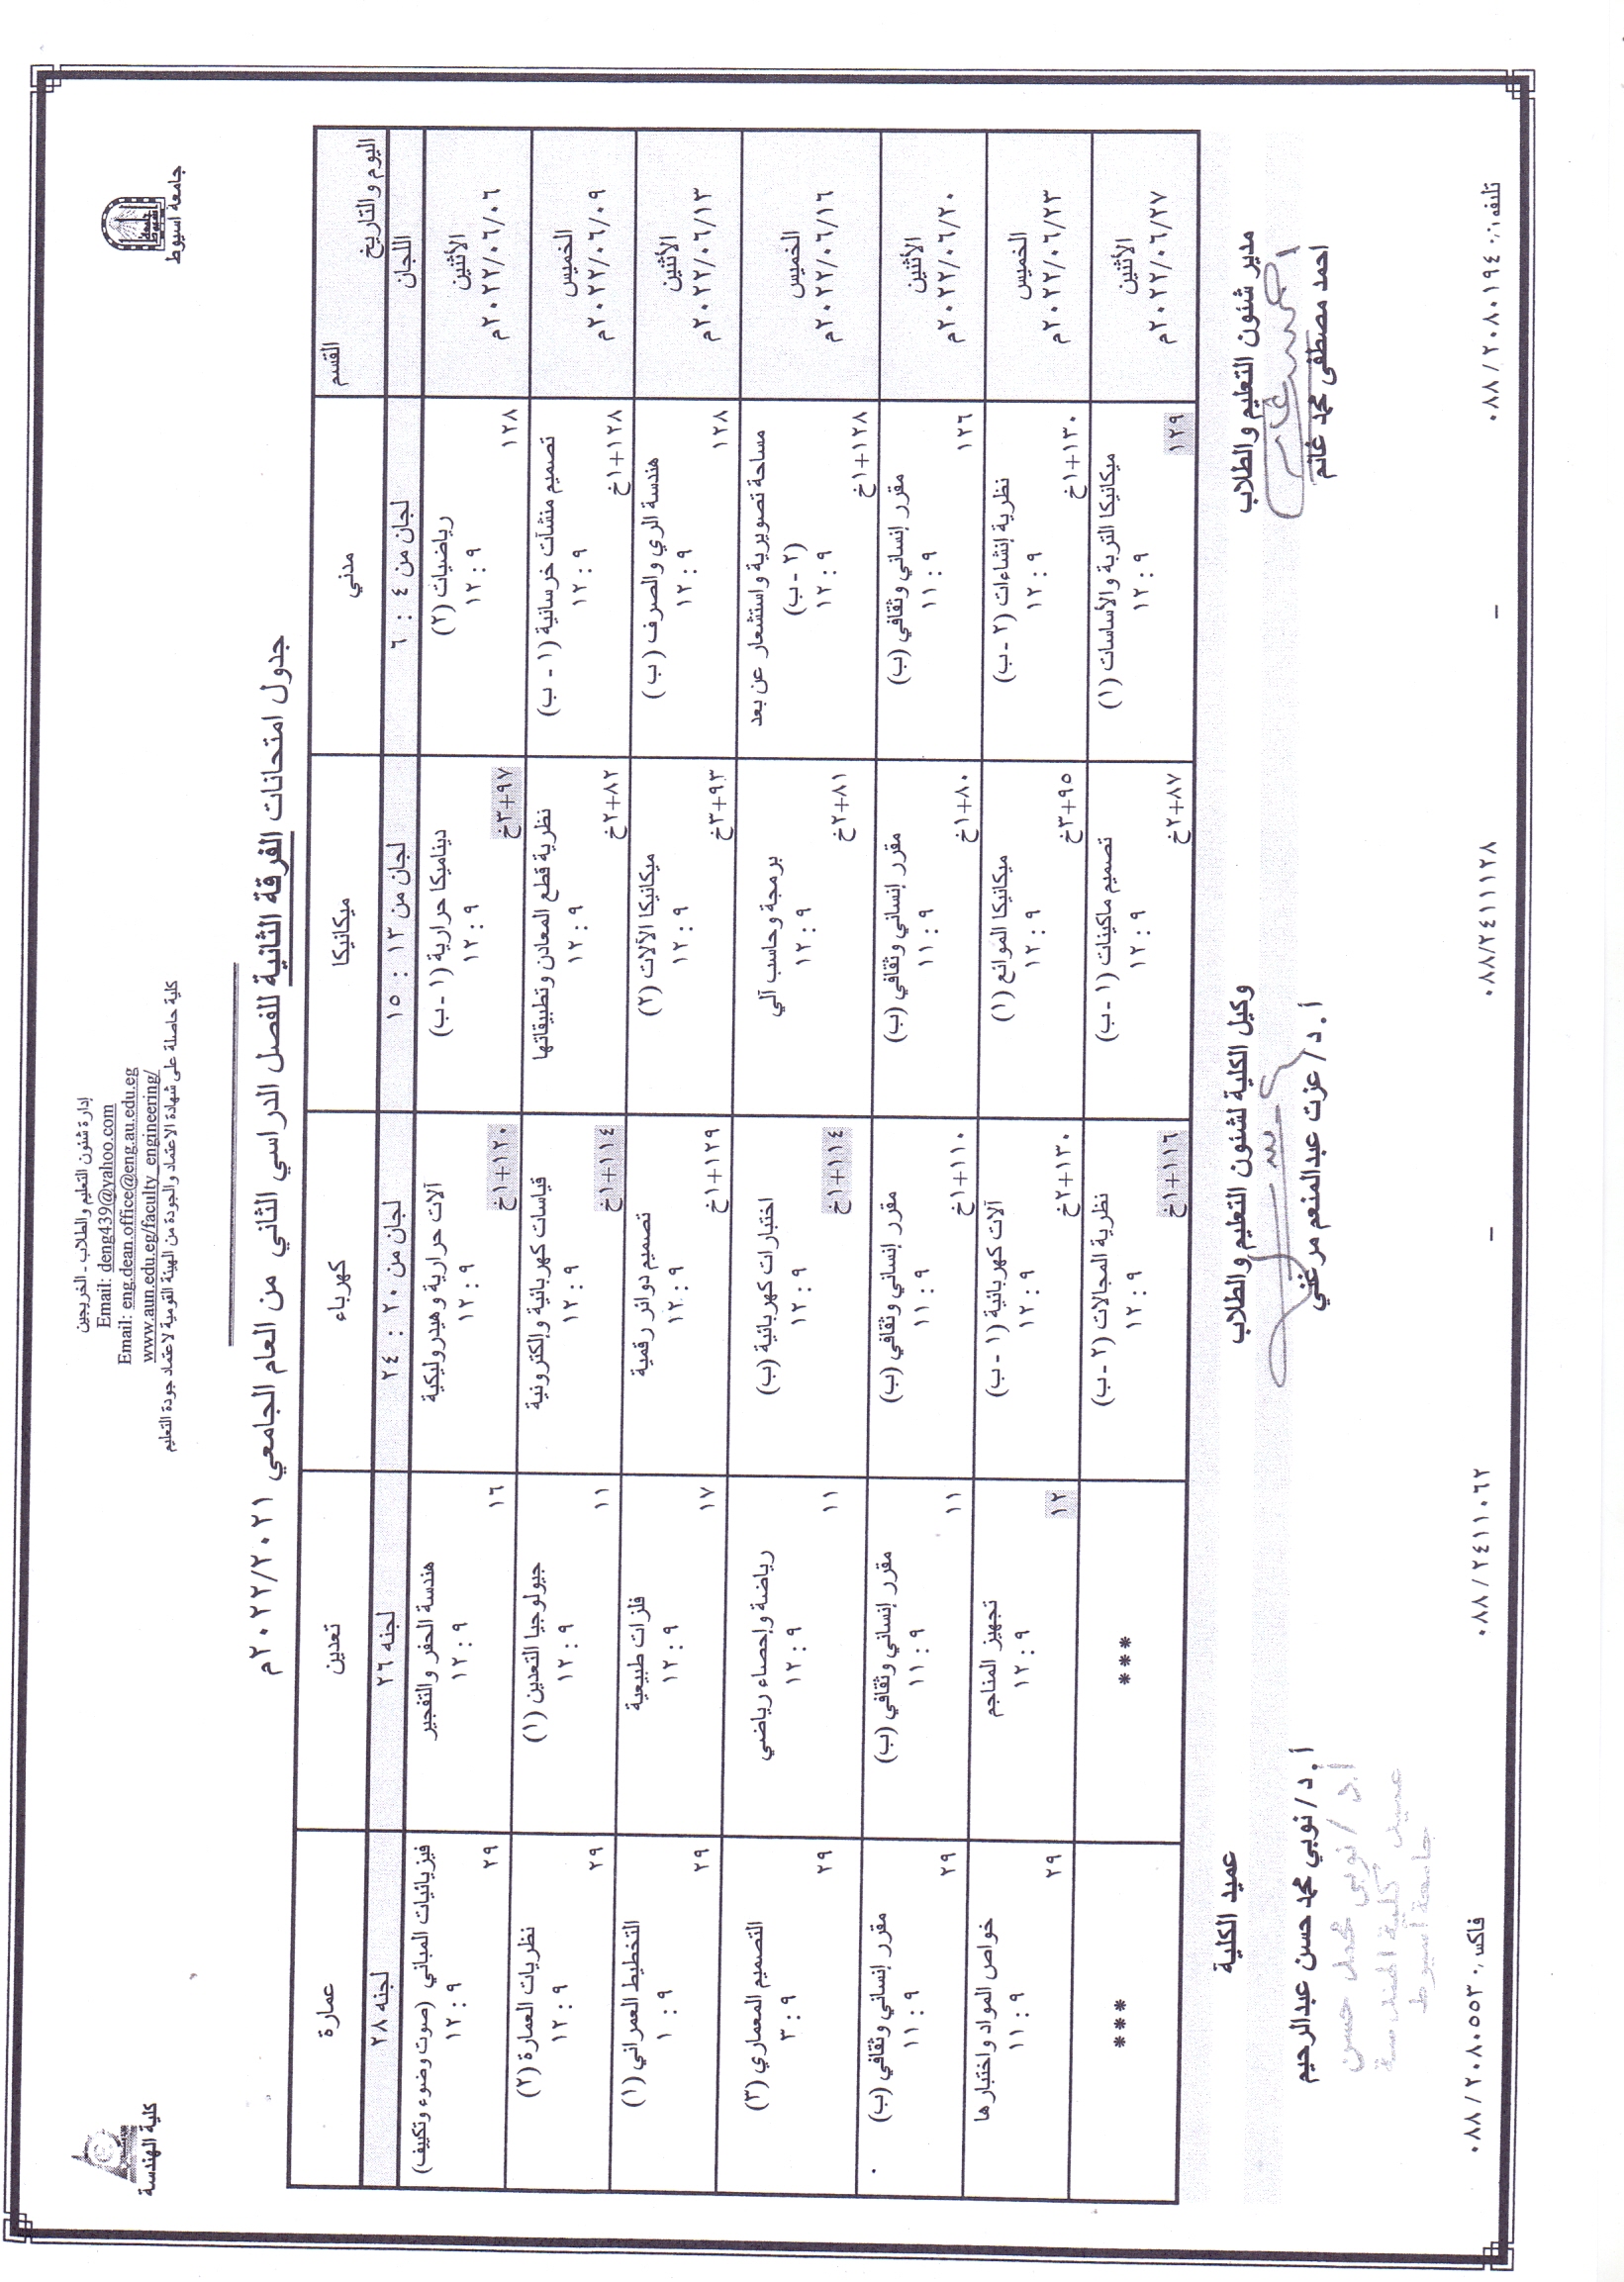 جامعة اسيوط
كلية الهندسة
إدارة شئون التعليم والطلاب - الخريجين
Email: deng439@yahoo.com
Email: eng.dean.office@eng.au.edu.eg
www.aun.edu.eg/faculty_engineering/
كلية حاصلة على شهادة الاعتماد والجودة من الهيئة القومية لاعتماد جودة التعليم
جدول امتحانات الفرقة الثانية للفصل الدراسي الثاني من العام الجامعي ٢٠٢٢/٢٠٢١م
اليوم والتاريخ القسم مدني ميكانيكا كهرباء تعدين عمارة
اللجان لجان من ٤ : ٦ لجان من ١٣ : ١٥ لجان من ٢٠ : ٢٤ لجنه ٢٦ لجنه ٢٨
الأثنين
٢٠٢٢/٠٦/٠٦م
رياضيات (٢)
٩ : ١٢
١٢٨
ديناميكا حرارية (١ - ب)
٩ : ١٢
٩٧+٣خ
آلات حرارية وهيدروليكية
٩ : ١٢
١٢٠+١خ
هندسة الحفر والتفجير
٩ : ١٢
١٦
فيزيائيات المباني (صوت وضوء وتكييف)
٩ : ١٢
٢٩
الخميس
٢٠٢٢/٠٦/٠٩م
تصميم منشآت خرسانية (١ - ب)
٩ : ١٢
١٢٨+١خ
نظرية قطع المعادن وتطبيقاتها
٩ : ١٢
٨٢+٢خ
قياسات كهربائية وإلكترونية
٩ : ١٢
١١٤+١خ
جيولوجيا التعدين (١)
٩ : ١٢
١١
نظريات العمارة (٢)
٩ : ١٢
٢٩
الأثنين
٢٠٢٢/٠٦/١٣م
هندسة الري والصرف (ب)
٩ : ١٢
١٢٨
ميكانيكا الآلات (٢)
٩ : ١٢
٩٣+٣خ
تصميم دوائر رقمية
٩ : ١٢
١٢٩+١خ
فلزات طبيعية
٩ : ١٢
١٧
التخطيط العمراني (١)
٩ : ١
٢٩
الخميس
٢٠٢٢/٠٦/١٦م
مساحة تصويرية واستشعار عن بعد
(٢ - ب)
٩ : ١٢
١٢٨+١خ
برمجة وحاسب آلي
٩ : ١٢
٨١+٢خ
اختبارات كهربائية (ب)
٩ : ١٢
١١٤+١خ
رياضة وإحصاء رياضي
٩ : ١٢
١١
التصميم المعماري (٣)
٩ : ٣
٢٩
الأثنين
٢٠٢٢/٠٦/٢٠م
مقرر إنساني وثقافي (ب)
٩ : ١١
١٢٦
مقرر إنساني وثقافي (ب)
٩ : ١١
٨٠+١خ
مقرر إنساني وثقافي (ب)
٩ : ١١
١١٠+١خ
مقرر إنساني وثقافي (ب)
٩ : ١١
١١
مقرر إنساني وثقافي (ب)
٩ : ١١
٢٩
الخميس
٢٠٢٢/٠٦/٢٣م
نظرية إنشاءات (٢ - ب)
٩ : ١٢
١٣٠+١خ
ميكانيكا الموائع (١)
٩ : ١٢
٩٥+٣خ
آلات كهربائية (١ - ب)
٩ : ١٢
١٣٠+٢خ
تجهيز المناجم
٩ : ١٢
١٢
خواص المواد واختبارها
٩ : ١١
٢٩
الأثنين
٢٠٢٢/٠٦/٢٧م
ميكانيكا التربة والأساسات (١)
٩ : ١٢
١٢٩
تصميم ماكينات (١ - ب)
٩ : ١٢
٨٧+٢خ
نظرية المجالات (٢ - ب)
٩ : ١٢
١١٦+١خ
***
***
مدير شئون التعليم والطلاب
احمد مصطفى محمد غانم
وكيل الكلية لشئون التعليم والطلاب
أ.د/ عزت عبدالمنعم مرغني
عميد الكلية
أ.د/ نوبي محمد حسن عبدالرحيم
أ.د/ نوبي محمد حسن
عميد كلية الهندسة
جامعة اسيوط
تليفون: ٠٨٨/٢٠٨٠١٩٤ - ٠٨٨/٢٤١١١٢٨ - ٠٨٨/٢٤١١٠٦٢ فاكس: ٠٨٨/٢٠٨٠٥٥٣